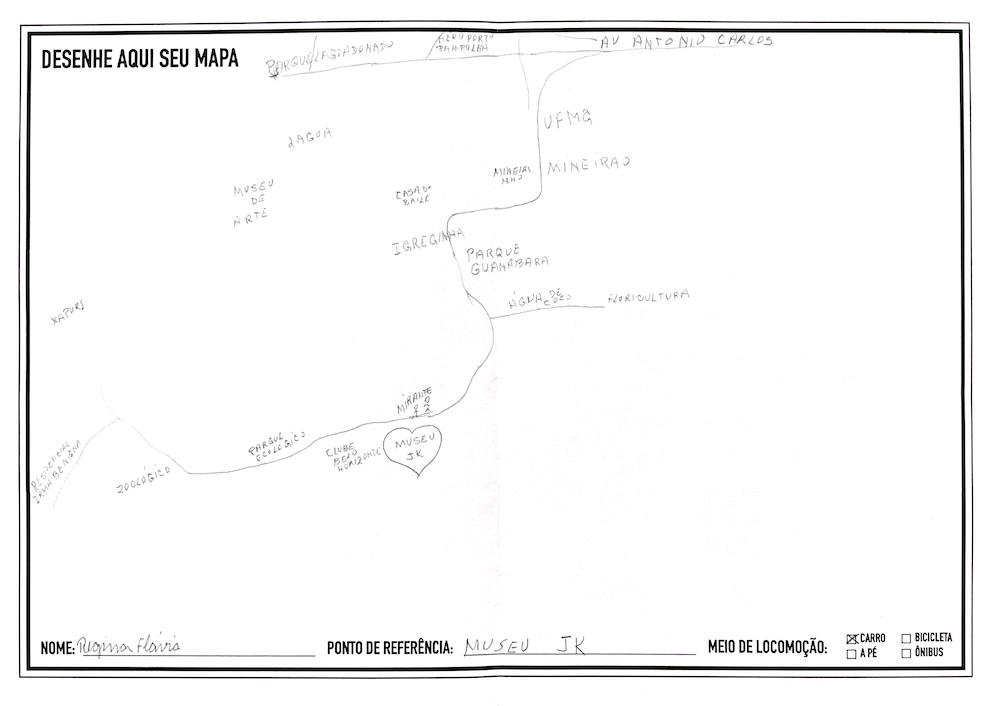 DESENHE AQUI SEU MAPA
PARQUE LAGOA DO NADO
AEROPORTO
PAMPULHA
AV ANTONIO CARLOS
UFMG
LAGOA
MINEIRI
NHO
MINEIRAO
MUSEU
DE
ARTE
CASA DO
BAILE
IGREGINHA
PARQUE
GUANABARA
ÁGUA DE
COCO
FLORICULTURA
XAPURI
MIRANTE
MUSEU
JK
PARQUE
ECOLÓGICO
CLUBE
BELO
HORIZONTE
RESIDENCIAL
IRMÃ BENIGNA
ZOOLÓGICO
NOME: Regina Flávia
PONTO DE REFERÊNCIA: MUSEU JK
MEIO DE LOCOMOÇÃO:
CARRO
BICICLETA
A PÉ
ÔNIBUS